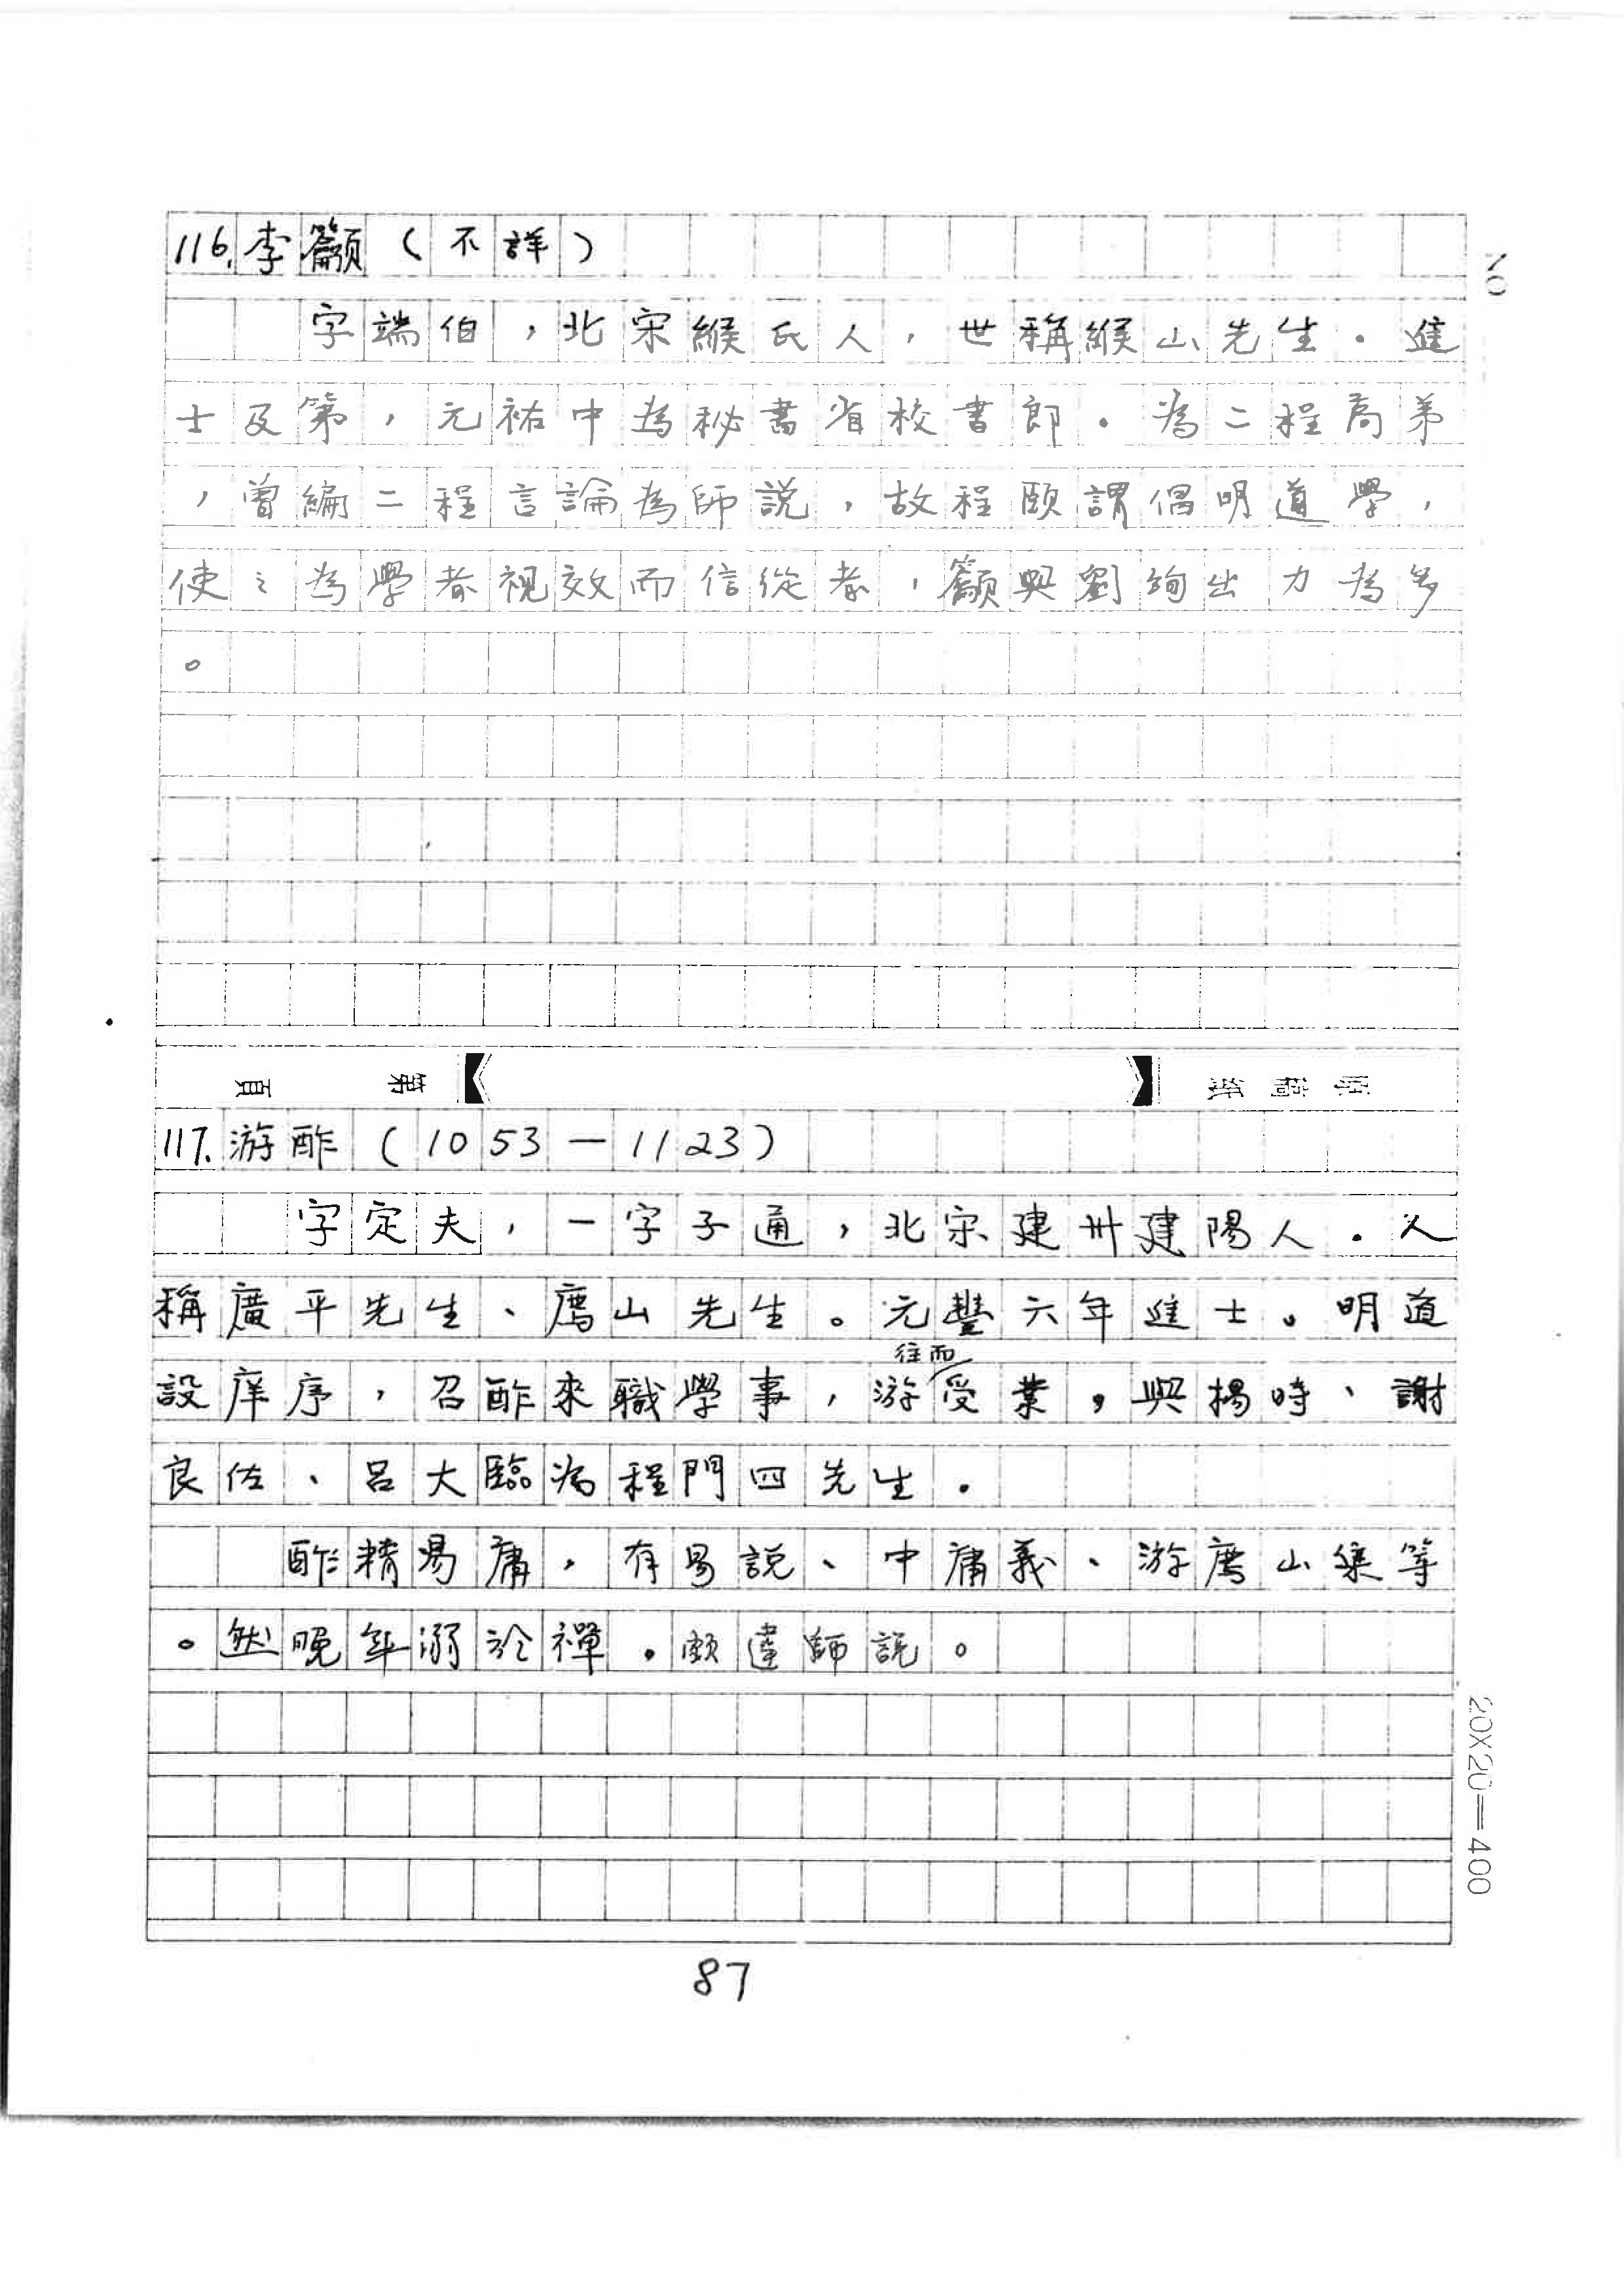 116.李籲(不詳)
字端伯,北宋緱氏人,世稱緱山先生。進
士及第,元祐中為秘書省校書郎。為二程高弟
,曾編二程言論為師說,故程頤謂倡明道學,
使之為學者視效而信從者,籲與劉絢出力為多
。
頁 第 原稿紙
117.游酢(1053—1123)
字定夫,一字子通,北宋建州建陽人。人
稱廣平先生、廌山先生。元豐六年進士。明道
設庠序,召酢來職學事,游往而受業,與楊時、謝
良佐、呂大臨為程門四先生。
酢精易庸,有易說、中庸義、游廌山集等
。然晚年溺於禪。頗違師說。
20X20=400
87